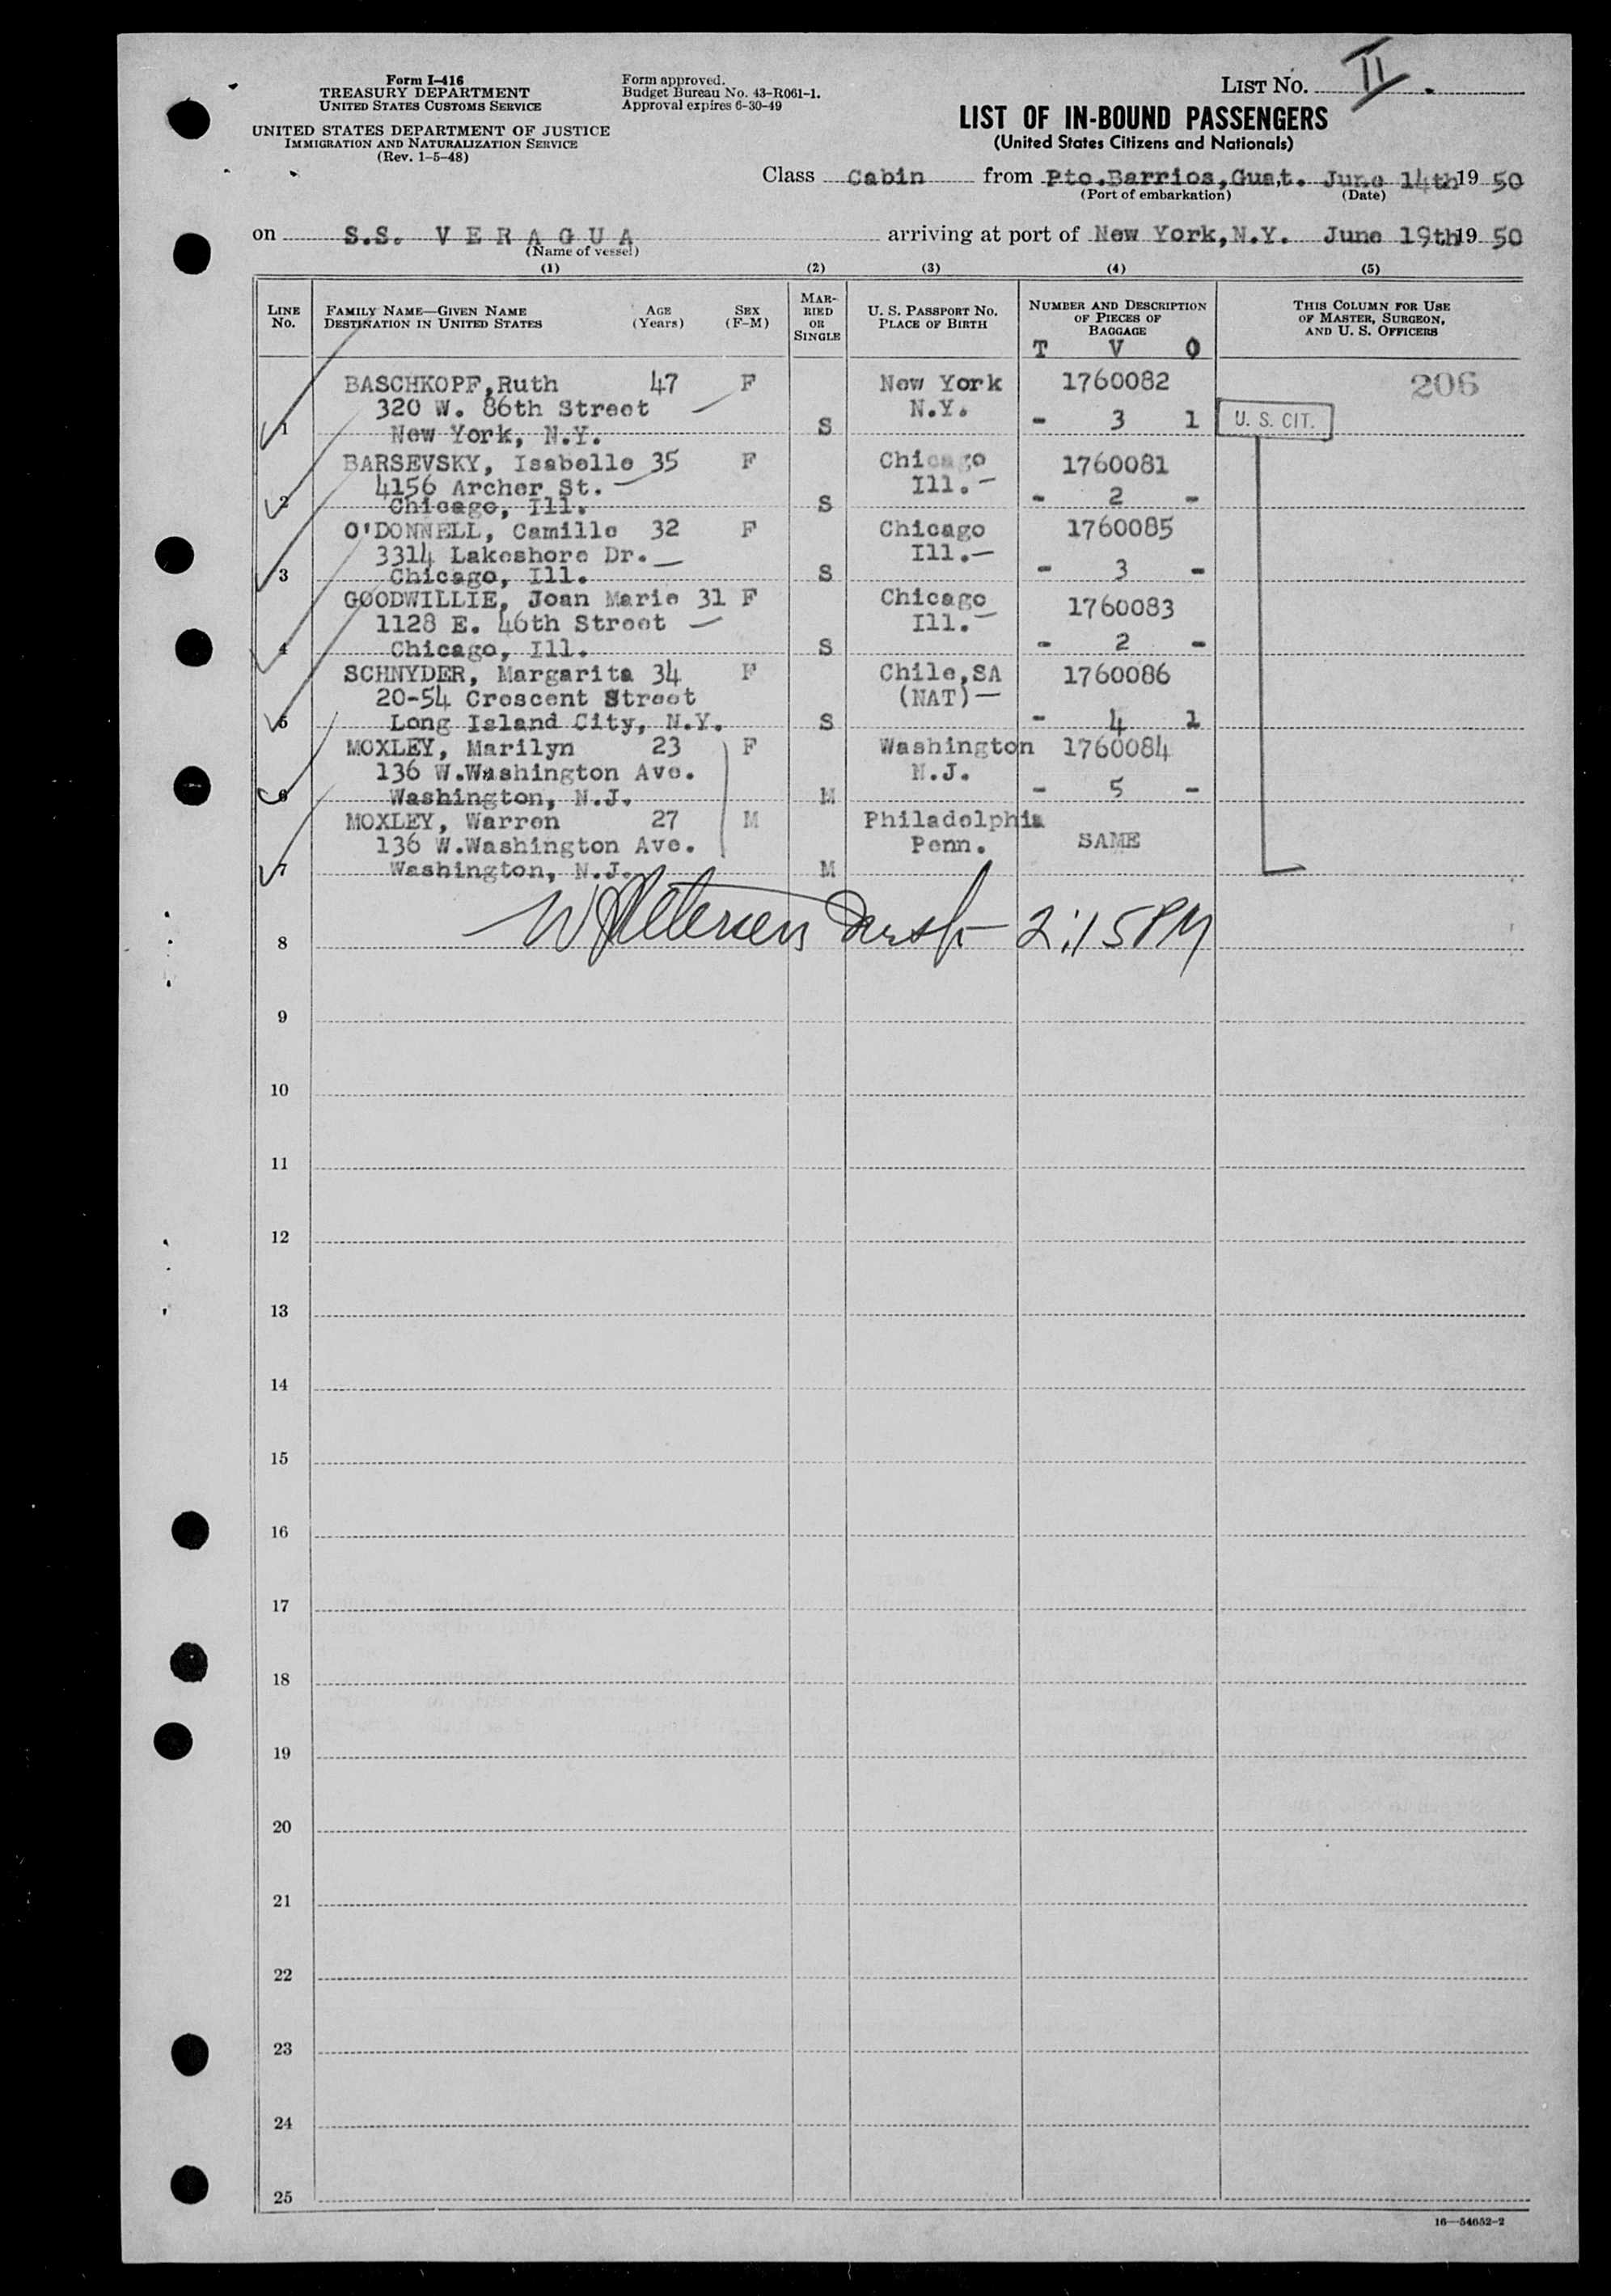 Form I-416
TREASURY DEPARTMENT
UNITED STATES CUSTOMS SERVICE
UNITED STATES DEPARTMENT OF JUSTICE
IMMIGRATION AND NATURALIZATION SERVICE
(Rev. 1-5-48)
Form approved.
Budget Bureau No. 43-R061-1.
Approval expires 6-30-49
LIST NO. II
LIST OF IN-BOUND PASSENGERS
(United States Citizens and Nationals)
Class Cabin from Pto.Barrios,Guat. June 14th 19 50
(Port of embarkation) (Date)
on S.S. VERAGUA arriving at port of New York,N.Y. June 19th 19 50
(Name of vessel)
(1) (2) (3) (4) (5)
LINE NO. FAMILY NAME—GIVEN NAME DESTINATION IN UNITED STATES AGE (Years) SEX (F-M) MARRIED OR SINGLE U. S. PASSPORT NO. PLACE OF BIRTH NUMBER AND DESCRIPTION OF PIECES OF BAGGAGE THIS COLUMN FOR USE OF MASTER, SURGEON, AND U. S. OFFICERS
T V O
BASCHKOPF,Ruth 47 F New York 1760082 206
320 W. 86th Street N.Y.
1 New York, N.Y. S - 3 1 U. S. CIT.
BARSEVSKY, Isabelle 35 F Chicago 1760081
4156 Archer St. Ill.
2 Chicago, Ill. S - 2 -
O'DONNELL, Camille 32 F Chicago 1760085
3314 Lakeshore Dr. Ill.
3 Chicago, Ill. S - 3 -
GOODWILLIE, Joan Marie 31 F Chicago 1760083
1128 E. 46th Street Ill.
4 Chicago, Ill. S - 2 -
SCHNYDER, Margarita 34 F Chile,SA 1760086
20-54 Crescent Street (NAT)
5 Long Island City, N.Y. S - 4 1
MOXLEY, Marilyn 23 F Washington 1760084
136 W.Washington Ave. N.J.
6 Washington, N.J. M - 5 -
MOXLEY, Warren 27 M Philadelphia
136 W.Washington Ave. Penn. SAME
7 Washington, N.J. M
8 2:15PM
9
10
11
12
13
14
15
16
17
18
19
20
21
22
23
24
25
16—54652-2